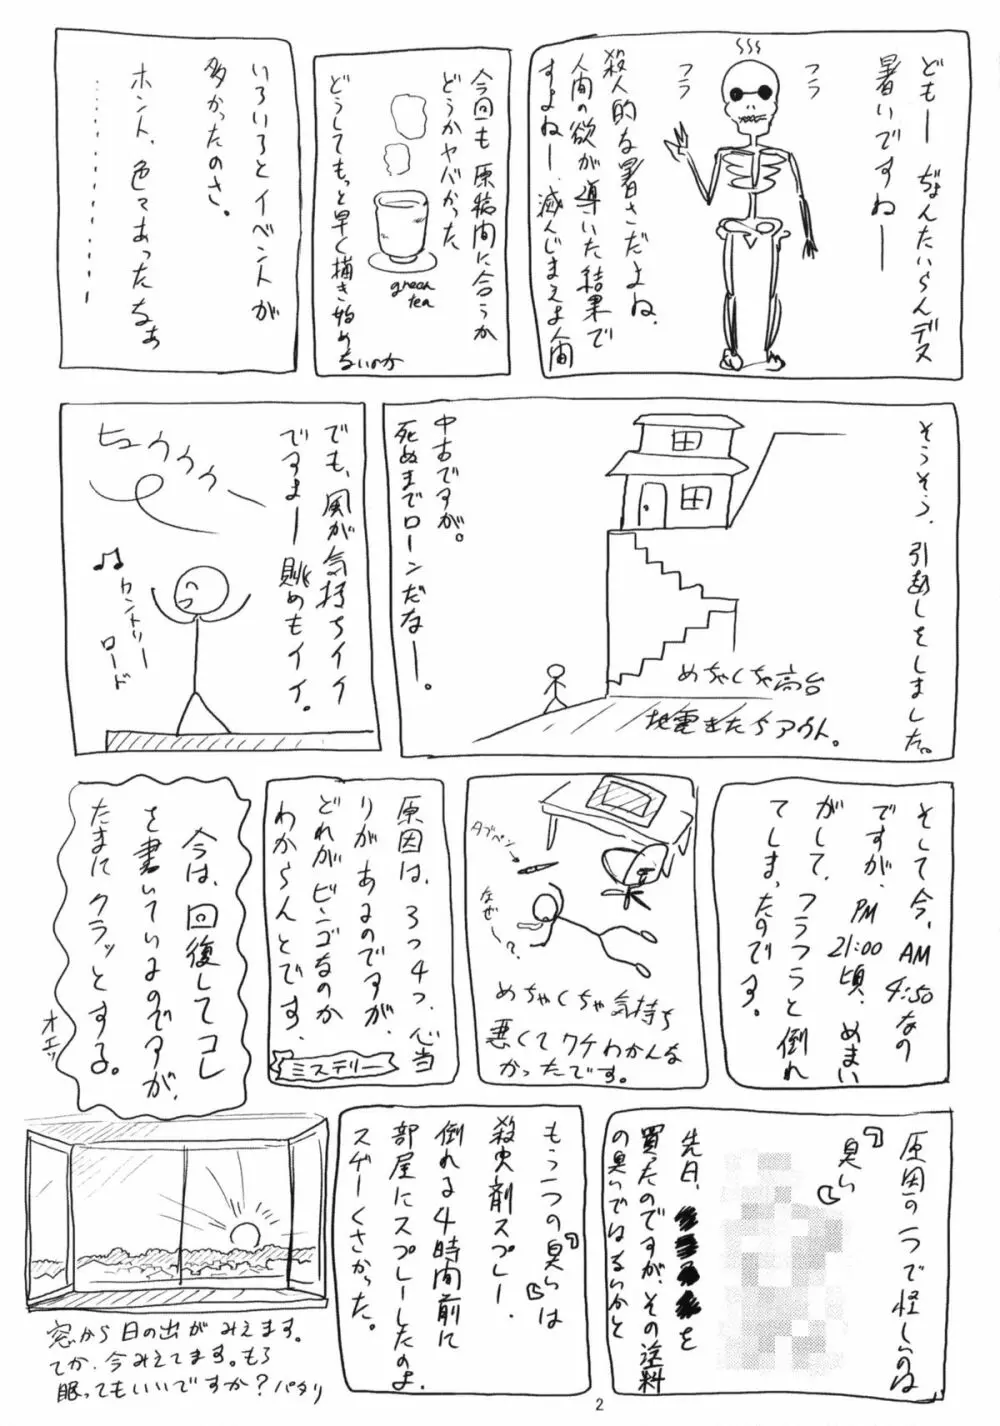 どもー ぢょんたいらんデス
暑いですねー
フラ
フラ
殺人的な暑さだよね、
人間の欲が導いた結果で
すよねー、滅んじまえよ人間
今回も原稿間に合うか
どうかヤバかった
green
tea
どうしてもっと早く描き始め
ないのか
いろいろとイベントが
多かったのさ。
ホント、色々あったなぁ
............
そうそう、引越しをしました。
めちゃくちゃ高台
地震きたらアウト。
中古ですが。
死ぬまでローンだなー。
でも、風が気持ちイイ
ですよー 眺めもイイ。
ヒュウウウー
♫カントリー
ロード
そして今、AM
4:50なの
ですが、PM
21:00頃、めまい
がして、フラフラと倒れ
てしまったのです。
タブペン
なぜ〜?
めちゃくちゃ気持ち
悪くてワケわかんな
かったです。
原因は、3つ4つ、心当
りがあるのですが、
どれがビンゴなのか
わからんとです、
ミステリー
今は、回復してコレ
を書いているのですが、
たまにクラッとする。
オエッ
原因の一つで怪しいのは
『臭い』
先日、
を
買ったのですが、その塗料
の臭いではないかと
もう一つの『臭い』は
殺虫剤スプレー、
倒れる4時間前に
部屋にスプレーしたのよ、
スゲーくさかった。
窓から日の出がみえます。
てか、今みえてます。もう
眠ってもいいですか?パタリ
2